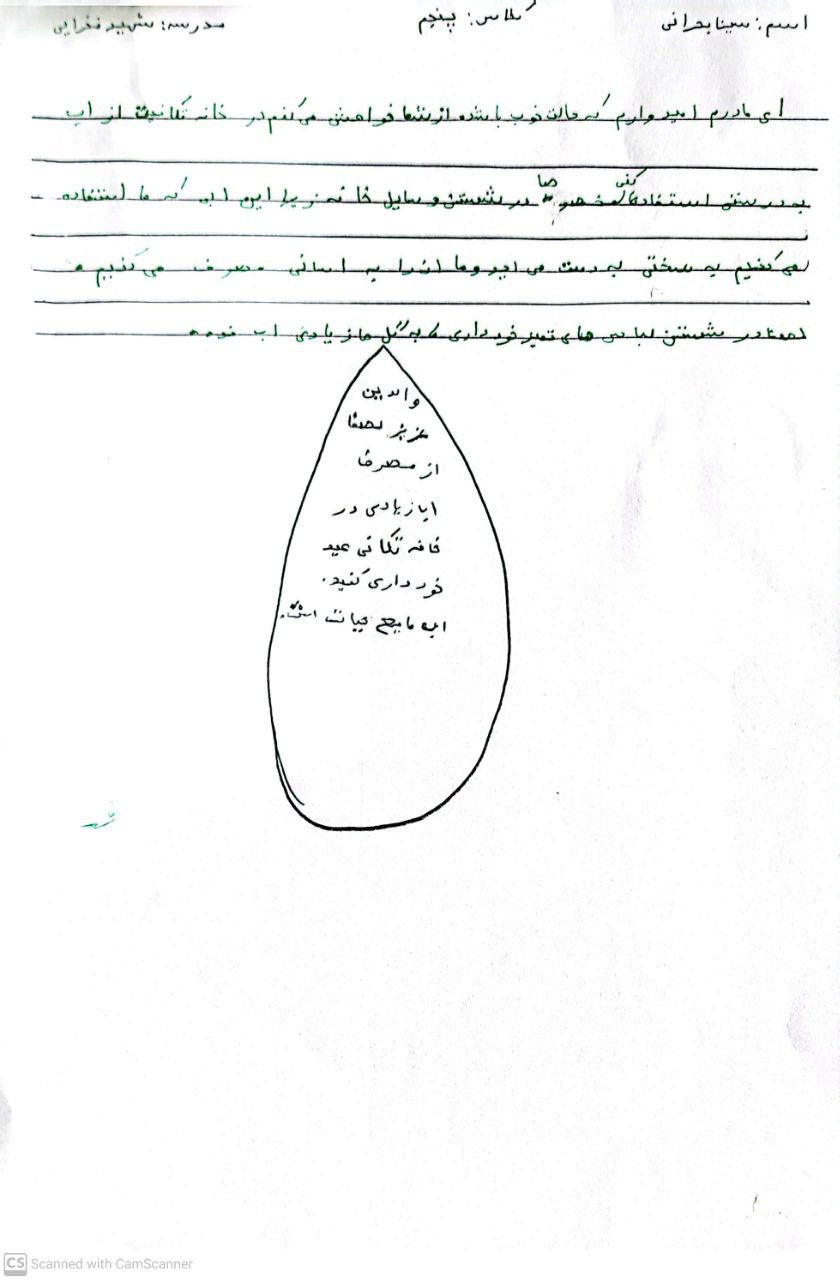 اسم: سینا بحرانی کلاس: پنجم مدرسه: شهید فدایی
ای مادرم امیدوارم که حالت خوب باشد از شما خواهش می کنم در خانه تکانیت از اب
به درستی استفاده کنی مخصوصا در شستن وسایل خانه زیرا این ابی که ما استفاده
می کنیم به سختی به دست می اید و ما ان را به اسانی مصرف می کنیم
در شستن لباس های تمیز خودداری کن به گل ها زیادی اب نده
والدین
عزیز لطفا
از مصرف
اب زیادی در
خانه تکانی عید
خود داری کنید.
اب مایع حیات است.
CS Scanned with CamScanner